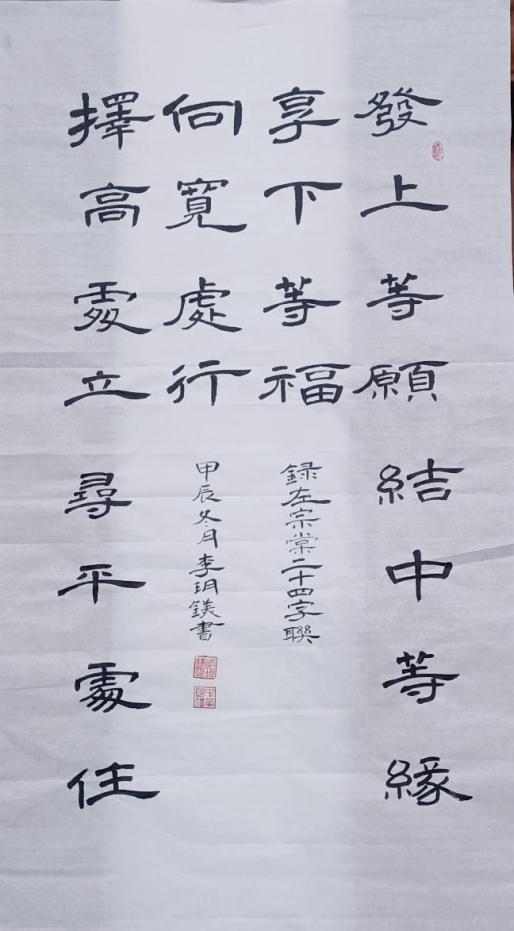 發上等願結中等緣
享下等福
擇高處立尋平處住
向寬處行
録左宗棠二十四字聯
甲辰冬月李玥鎂書